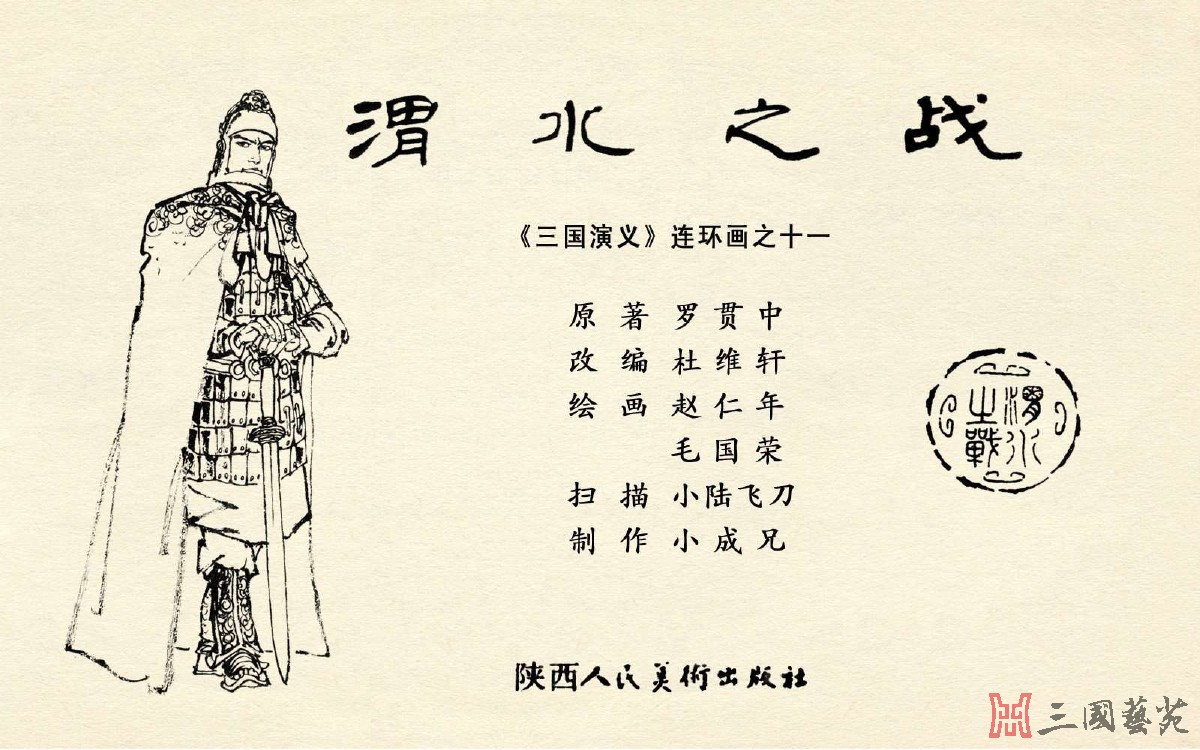 渭水之战
《三国演义》连环画之十一
原著 罗贯中
改编 杜维轩
绘画 赵仁年
毛国荣
扫描 小陆飞刀
制作 小成兄
渭水之戰
陕西人民美術出版社
三國藝苑